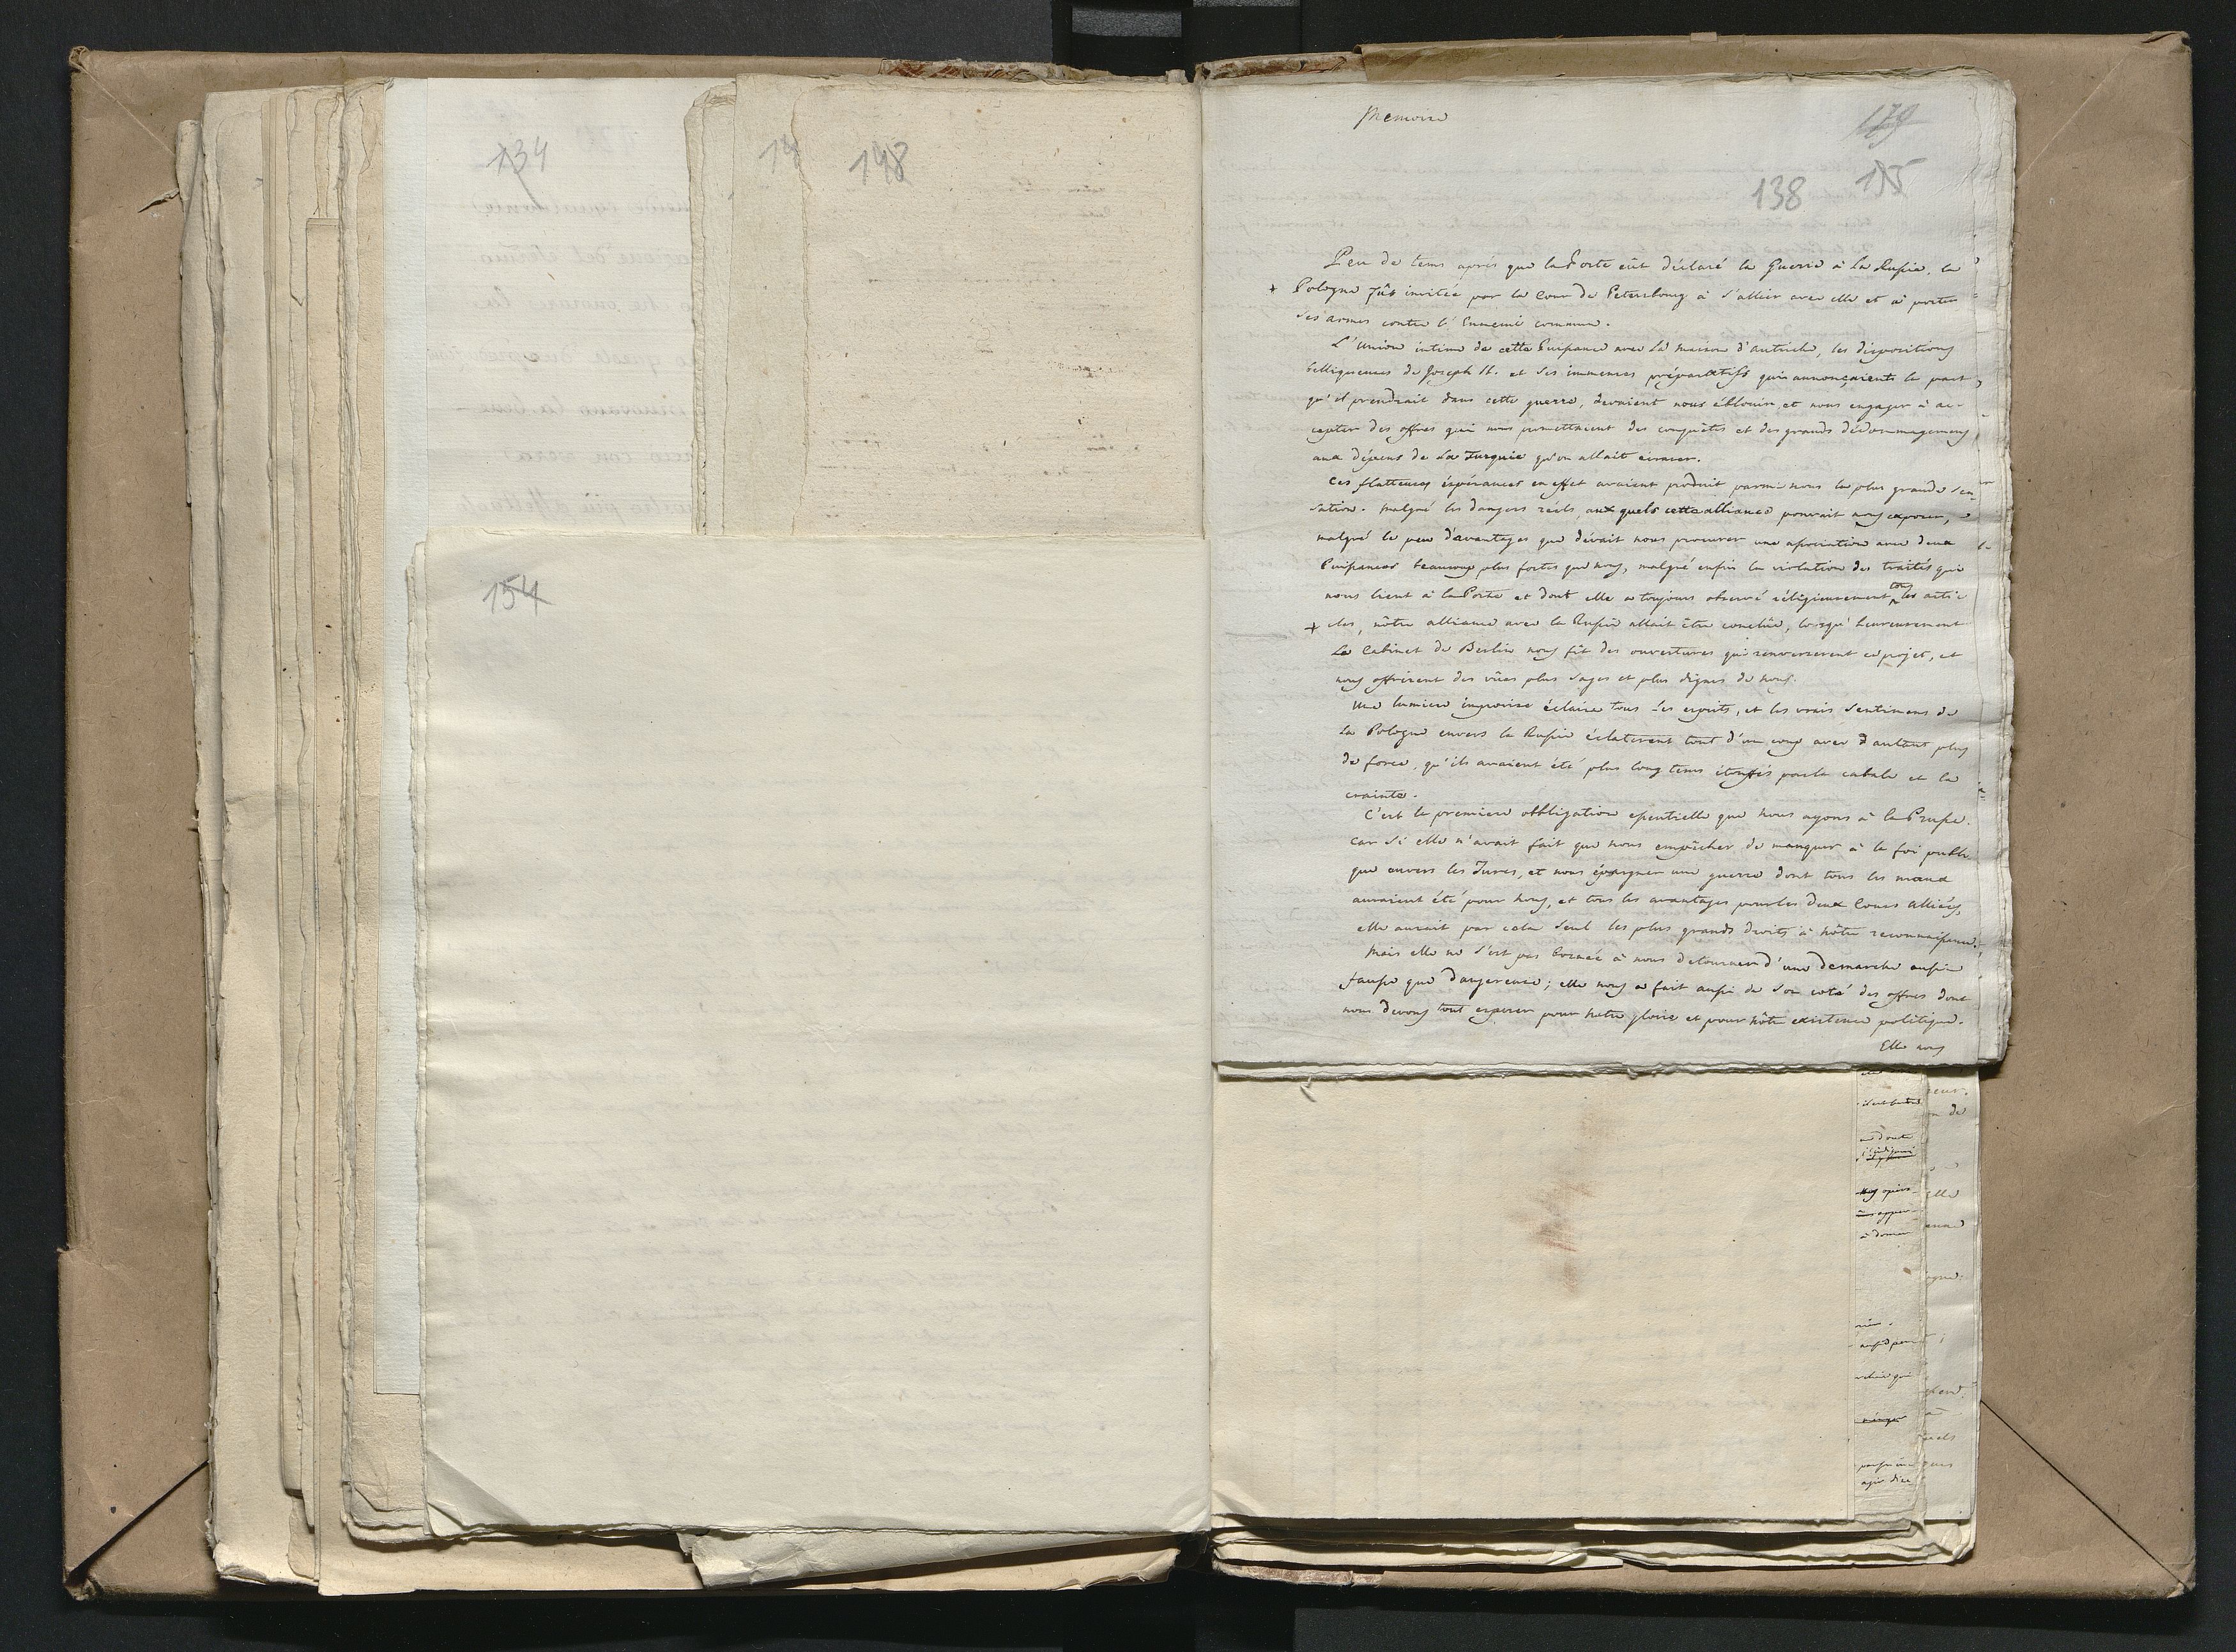 134
14
148
154
Memoire
179
138 155
Peu de tems après que la Porte eût déclaré la Guerre à La Russie, la
+ Pologne fût invitée par la Cour de Petersbourg à s'allier avec elle et à porter
ses armes contre l'Ennemi commun.
L'Union intime de cette Puissance avec la maison d'autriche, les dispositions
belliqueuses de Joseph II. et ses immenses préparatifs qui annonçaient la part
qu'il prendrait dans cette guerre, devaient nous éblouir, et nous engager à ac-
cepter des offres qui nous promettaient des conquêtes et des grands dédommagemens
aux dépens de la Turquie qu'on allait écraser.
Ces flatteuses éspérances en effet avaient produit parmi nous la plus grande sen
sation. malgré les dangers réels, aux quels cette alliance pouvait nous exposer,
malgré le peu d'avantages que dévait nous procurer une association avec deux
Puissances beaucoup plus fortes que nous, malgré enfin la violation des traités qui
nous lient à la Porte et dont elle a toujours observé réligieusement tous les arti-
+ cles, nôtre alliance avec la Russie allait être conclüe, lorsqu'heureusement
Le Cabinet de Berlin nous fit des ouvertures qui renverserent ce projet, et
nous offrirent des vües plus sages et plus dignes de nous.
Une lumiere improvise éclaira tous les esprits, et les vrais sentimens de
La Pologne envers la Russie éclaterent tout d'un coup avec d'autant plus
de force, qu'ils avaient été plus long tems étouffés par la cabale et la
crainte.
C'est la premiere obbligation essentielle que nous ayons à la Prusse.
Car si elle n'avait fait que nous empêcher de manquer à la foi publi
que envers les Turcs, et nous épargner une guerre dont tous les maux
auraient été pour nous, et tous les avantages pour les deux Cours alliées,
elle aurait par cela seul les plus grands droits à nôtre reconnaissance.
Mais elle ne s'est pas bornée à nous detourner d'une demarche aussi
fausse que dangereuse; elle nous a fait aussi de son coté des offres dont
nous devons tout esperer pour notre gloire et pour nôtre existence politique.
Elle nous